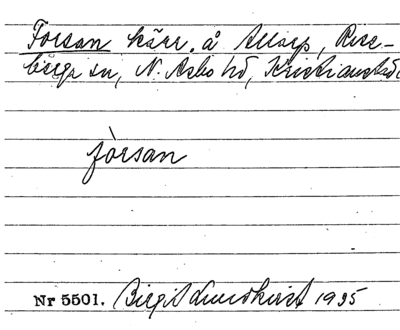 Forsan kärr. å Allarp, Rise-
berga sn, N. Asbo hd, Kristianstads
fòrsan
Nr 5501. Birgit Lundkvist 1935